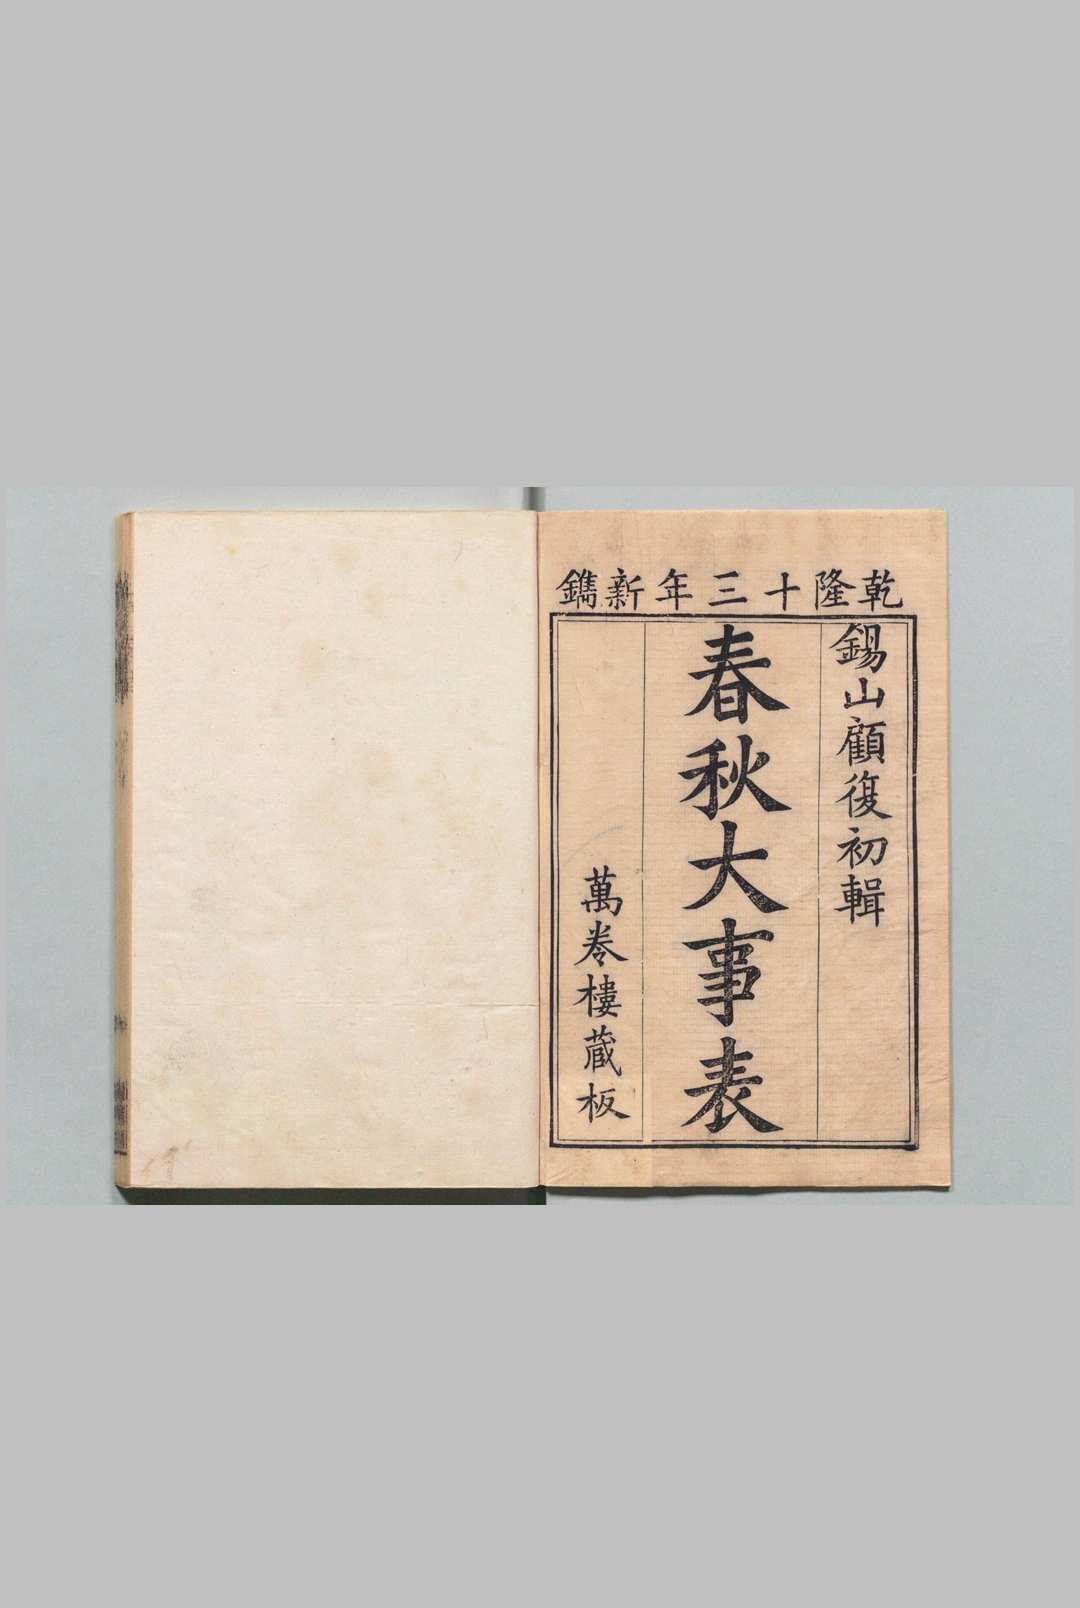 乾隆十三年新鐫
錫山顧復初輯
春秋大事表
萬卷樓藏板